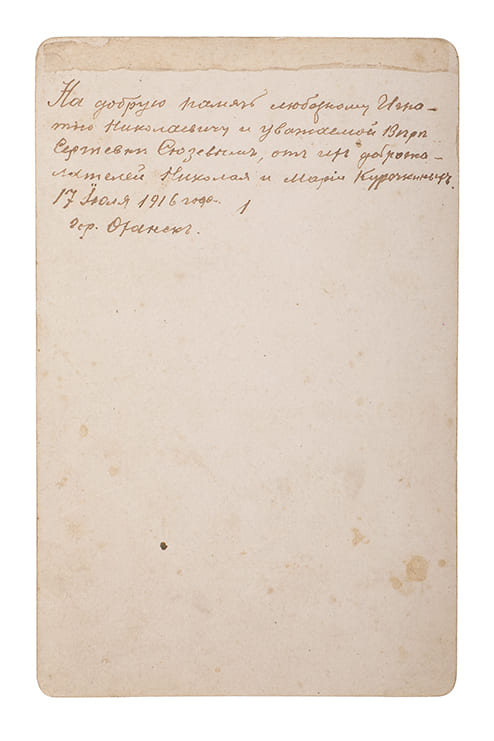 На добрую память любезному Игна-
тiю Николаевичу и уважаемой Вѣрѣ
Сергѣевнѣ Сюзевымъ, отъ ихъ доброже-
лателей Николая и Марiи Курочкиныхъ.
17 Iюля 1916 года.
гор. Оханскъ.